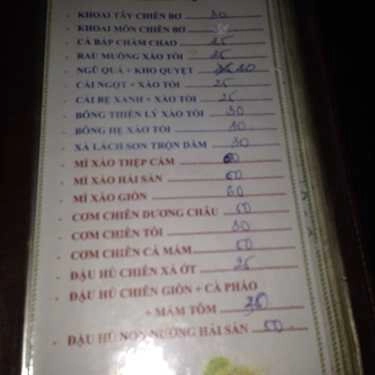 - KHOAI TÂY CHIÊN BƠ 30
- KHOAI MÔN CHIÊN BƠ
- CÀ BÁP CHẤM CHAO 25
- RAU MUỐNG XÀO TỎI 25
- NGŨ QUẢ + KHO QUYẸT 30
- CẢI NGỌT + XÀO TỎI 25
- CẢI BẸ XANH + XÀO TỎI 25
- BÔNG THIÊN LÝ XÀO TỎI 30
- BÔNG HẸ XÀO TỎI 30
- XÀ LÁCH SON TRỘN DẦM 30
- MÌ XÀO THẬP CẨM 60
- MÌ XÀO HẢI SẢN 60
- MÌ XÀO GIÒN 60
- CƠM CHIÊN DƯƠNG CHÂU 50
- CƠM CHIÊN TỎI 30
- CƠM CHIÊN CÁ MẶM 50
- ĐẬU HỦ CHIÊN XẢ ỚT 25
- ĐẬU HỦ CHIÊN GIÒN + CÀ PHÁO
+ MẮM TÔM 35
- ĐẬU HỦ NON NƯỚNG HẢI SẢN 50